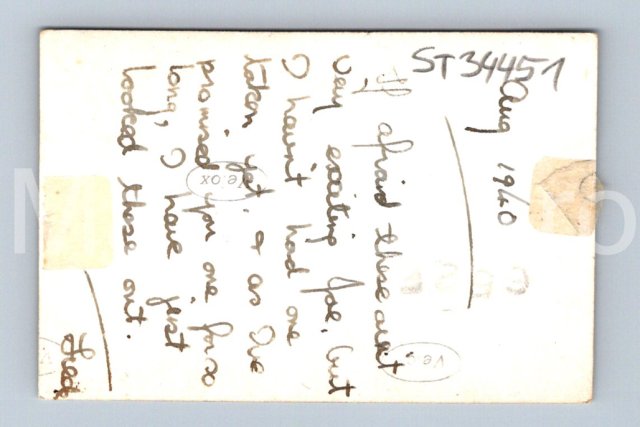 ST34451
Aug 1940
If afraid these aren't
very exciting Joe, but
I havn't had one
taken yet. & as I've
promised you one for so
long, I have just
looked these out.
Velox